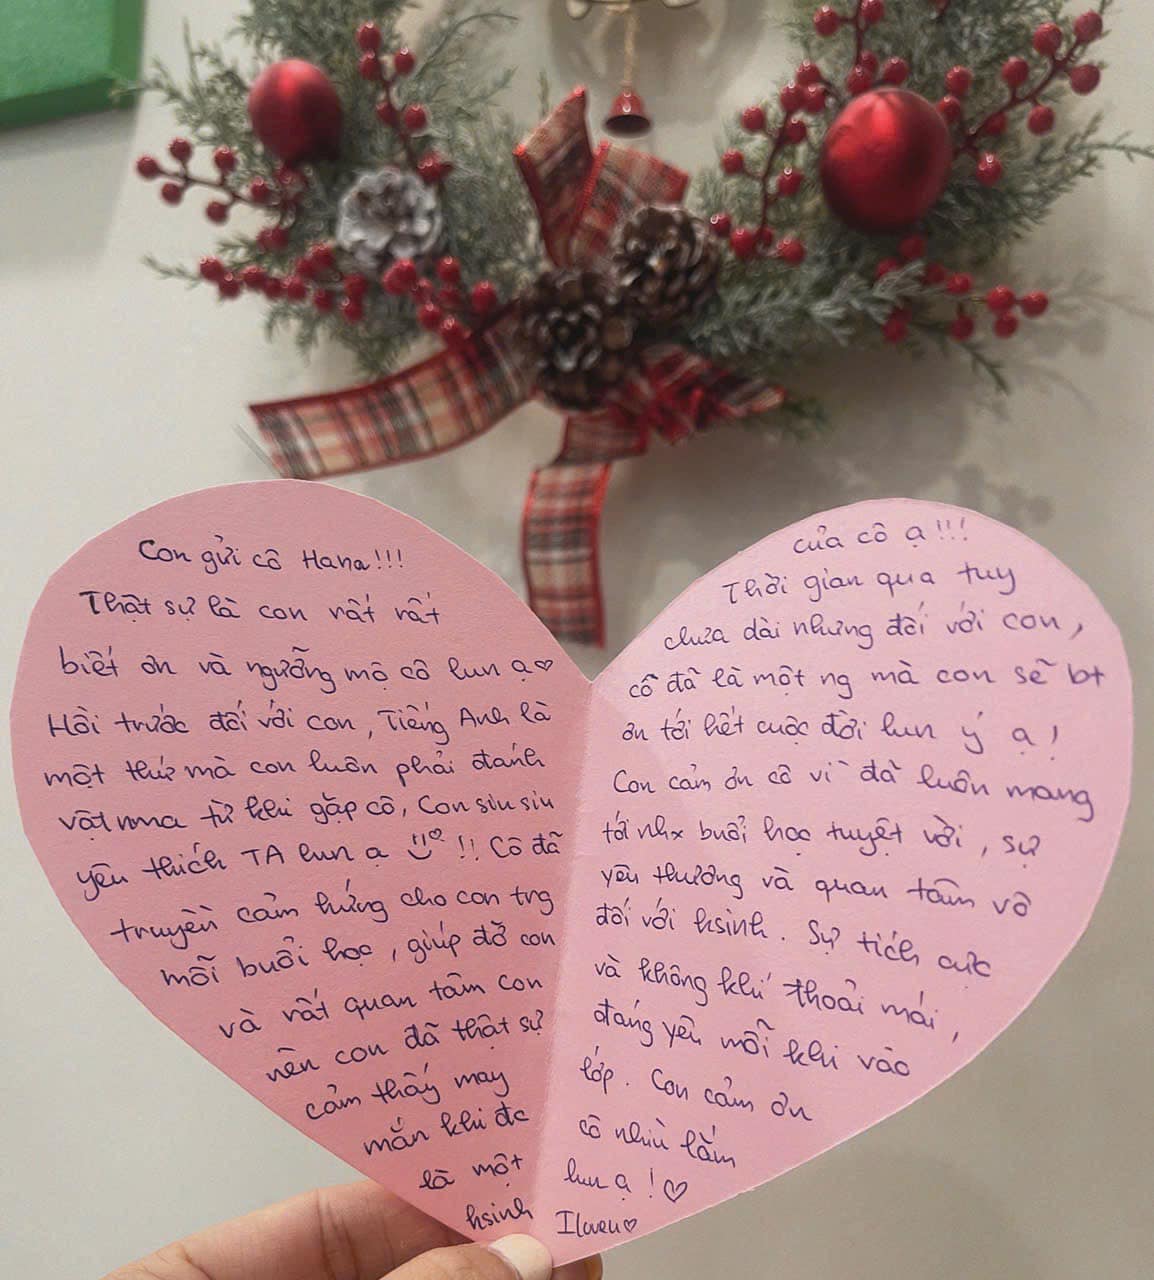 Con gửi cô Hana!!!
Thật sự là con rất rất
biết ơn và ngưỡng mộ cô lun ạ♡
Hồi trước đối với con, Tiếng Anh là
một thứ mà con luôn phải đánh
vật nma từ khi gặp cô, Con siu siu
yêu thích TA lun ạ !! Cô đã
truyền cảm hứng cho con trg
mỗi buổi học, giúp đỡ con
và rất quan tâm con
nên con đã thật sự
cảm thấy may
mắn khi đc
là một
hsinh
của cô ạ!!!
Thời gian qua tuy
chưa dài nhưng đối với con,
cô đã là một ng mà con sẽ bt
ơn tới hết cuộc đời lun ý ạ!
Con cảm ơn cô vì đã luôn mang
tới nhx buổi học tuyệt vời, sự
yêu thương và quan tâm vô
đối với hsinh. Sự tích cực
và không khí thoải mái,
đáng yêu mỗi khi vào
lớp. Con cảm ơn
cô nhìu lắm
lun ạ!♡
Iloveu♡